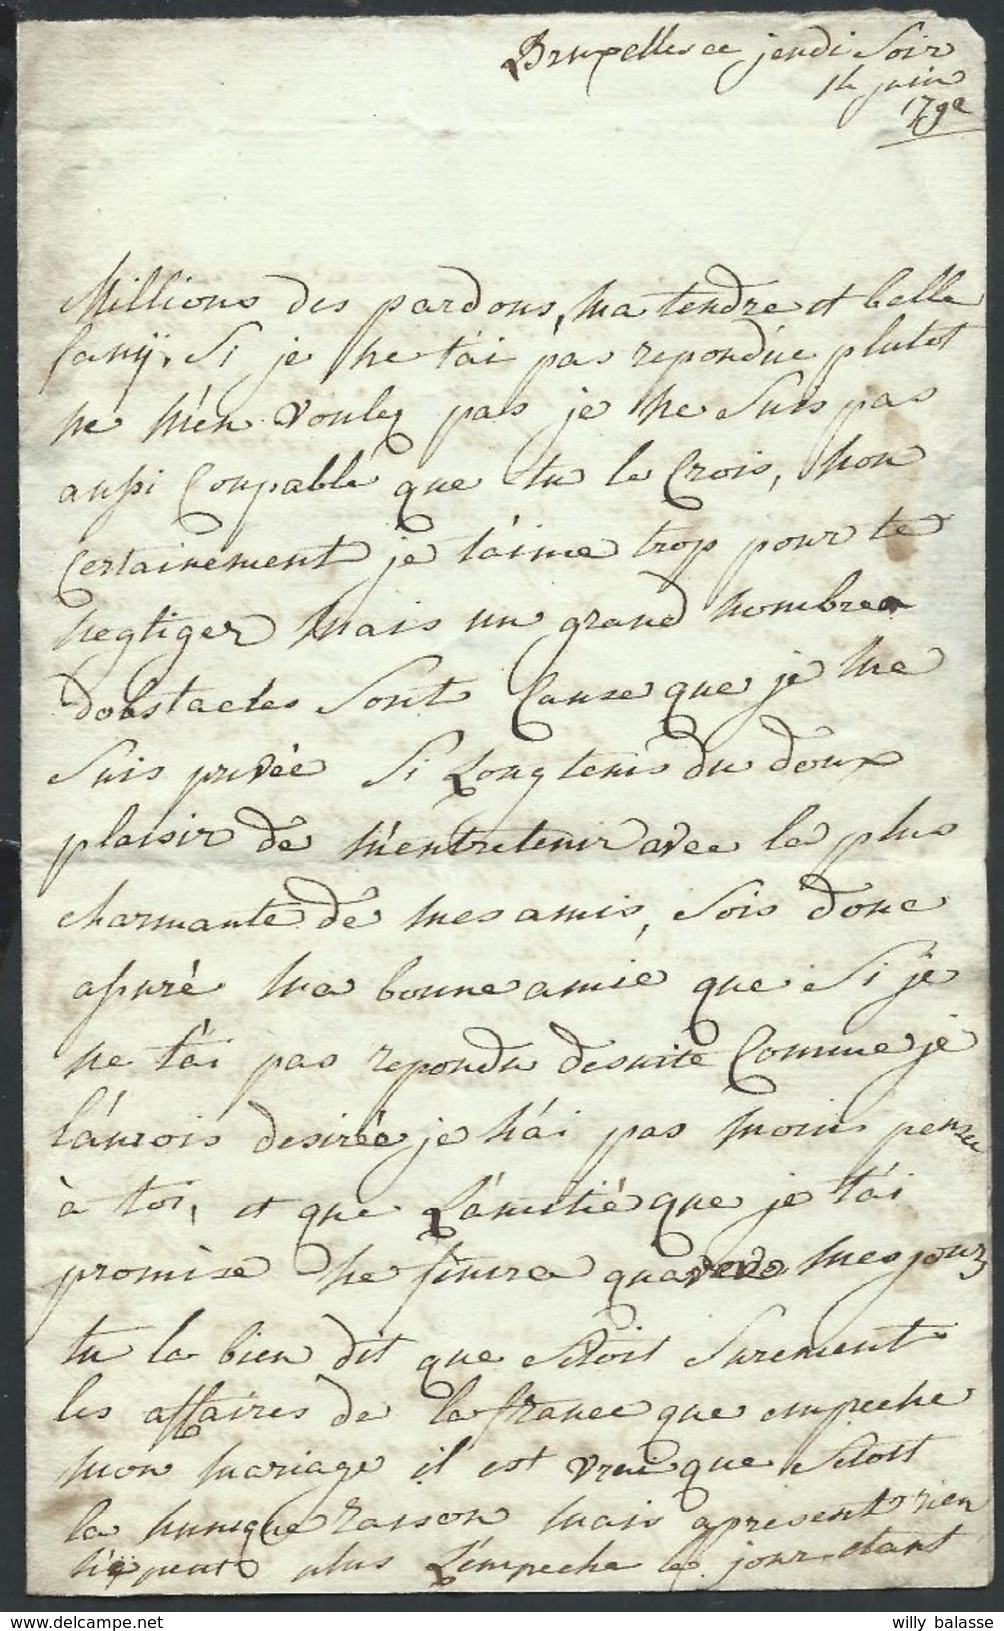 Bruxelles ce jeudi Soir
14 juin
1792
Millions des pardons, ma tendre et belle
fanÿ, Si je ne t'ai pas repondúe plutot
ne m'én voulez pas je ne Suis pas
aussi Coupable que tu le Crois, non
Certainement je t'aime trop pour te
negliger mais un grand nombre
dobstacles Sont Cause que je me
Suis privée Si Longtems du doux
plaisir de m'entretenir avec la plus
charmante de mes amis, Sois donc
assuré ma bonne amie que Si je
ne t'ai pas repondu desuite Comme je
l'aurois desirée je n'ai pas moins pensée
à toi, et que L'amitié que je t'ai
promise ne finira qu'avec mes jours
tu la bien dit que Setoit Surement
les affaires de la france que empeche
mon mariage il est vrai que Setoit
la hunique raison mais apresent rien
ne peut plus L'empeche le jour etant
willy balasse